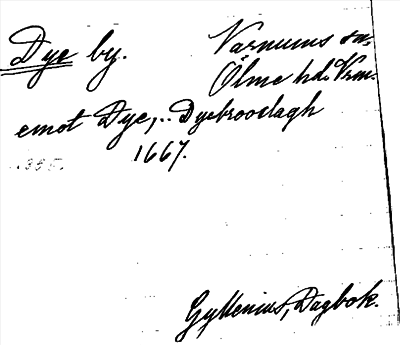 Dye by. Varnums sn,
Ölme hd. Vrm.
emot Dye, .. Dyebrooslagh
1667.
355.
Gyllenius, Dagbok.